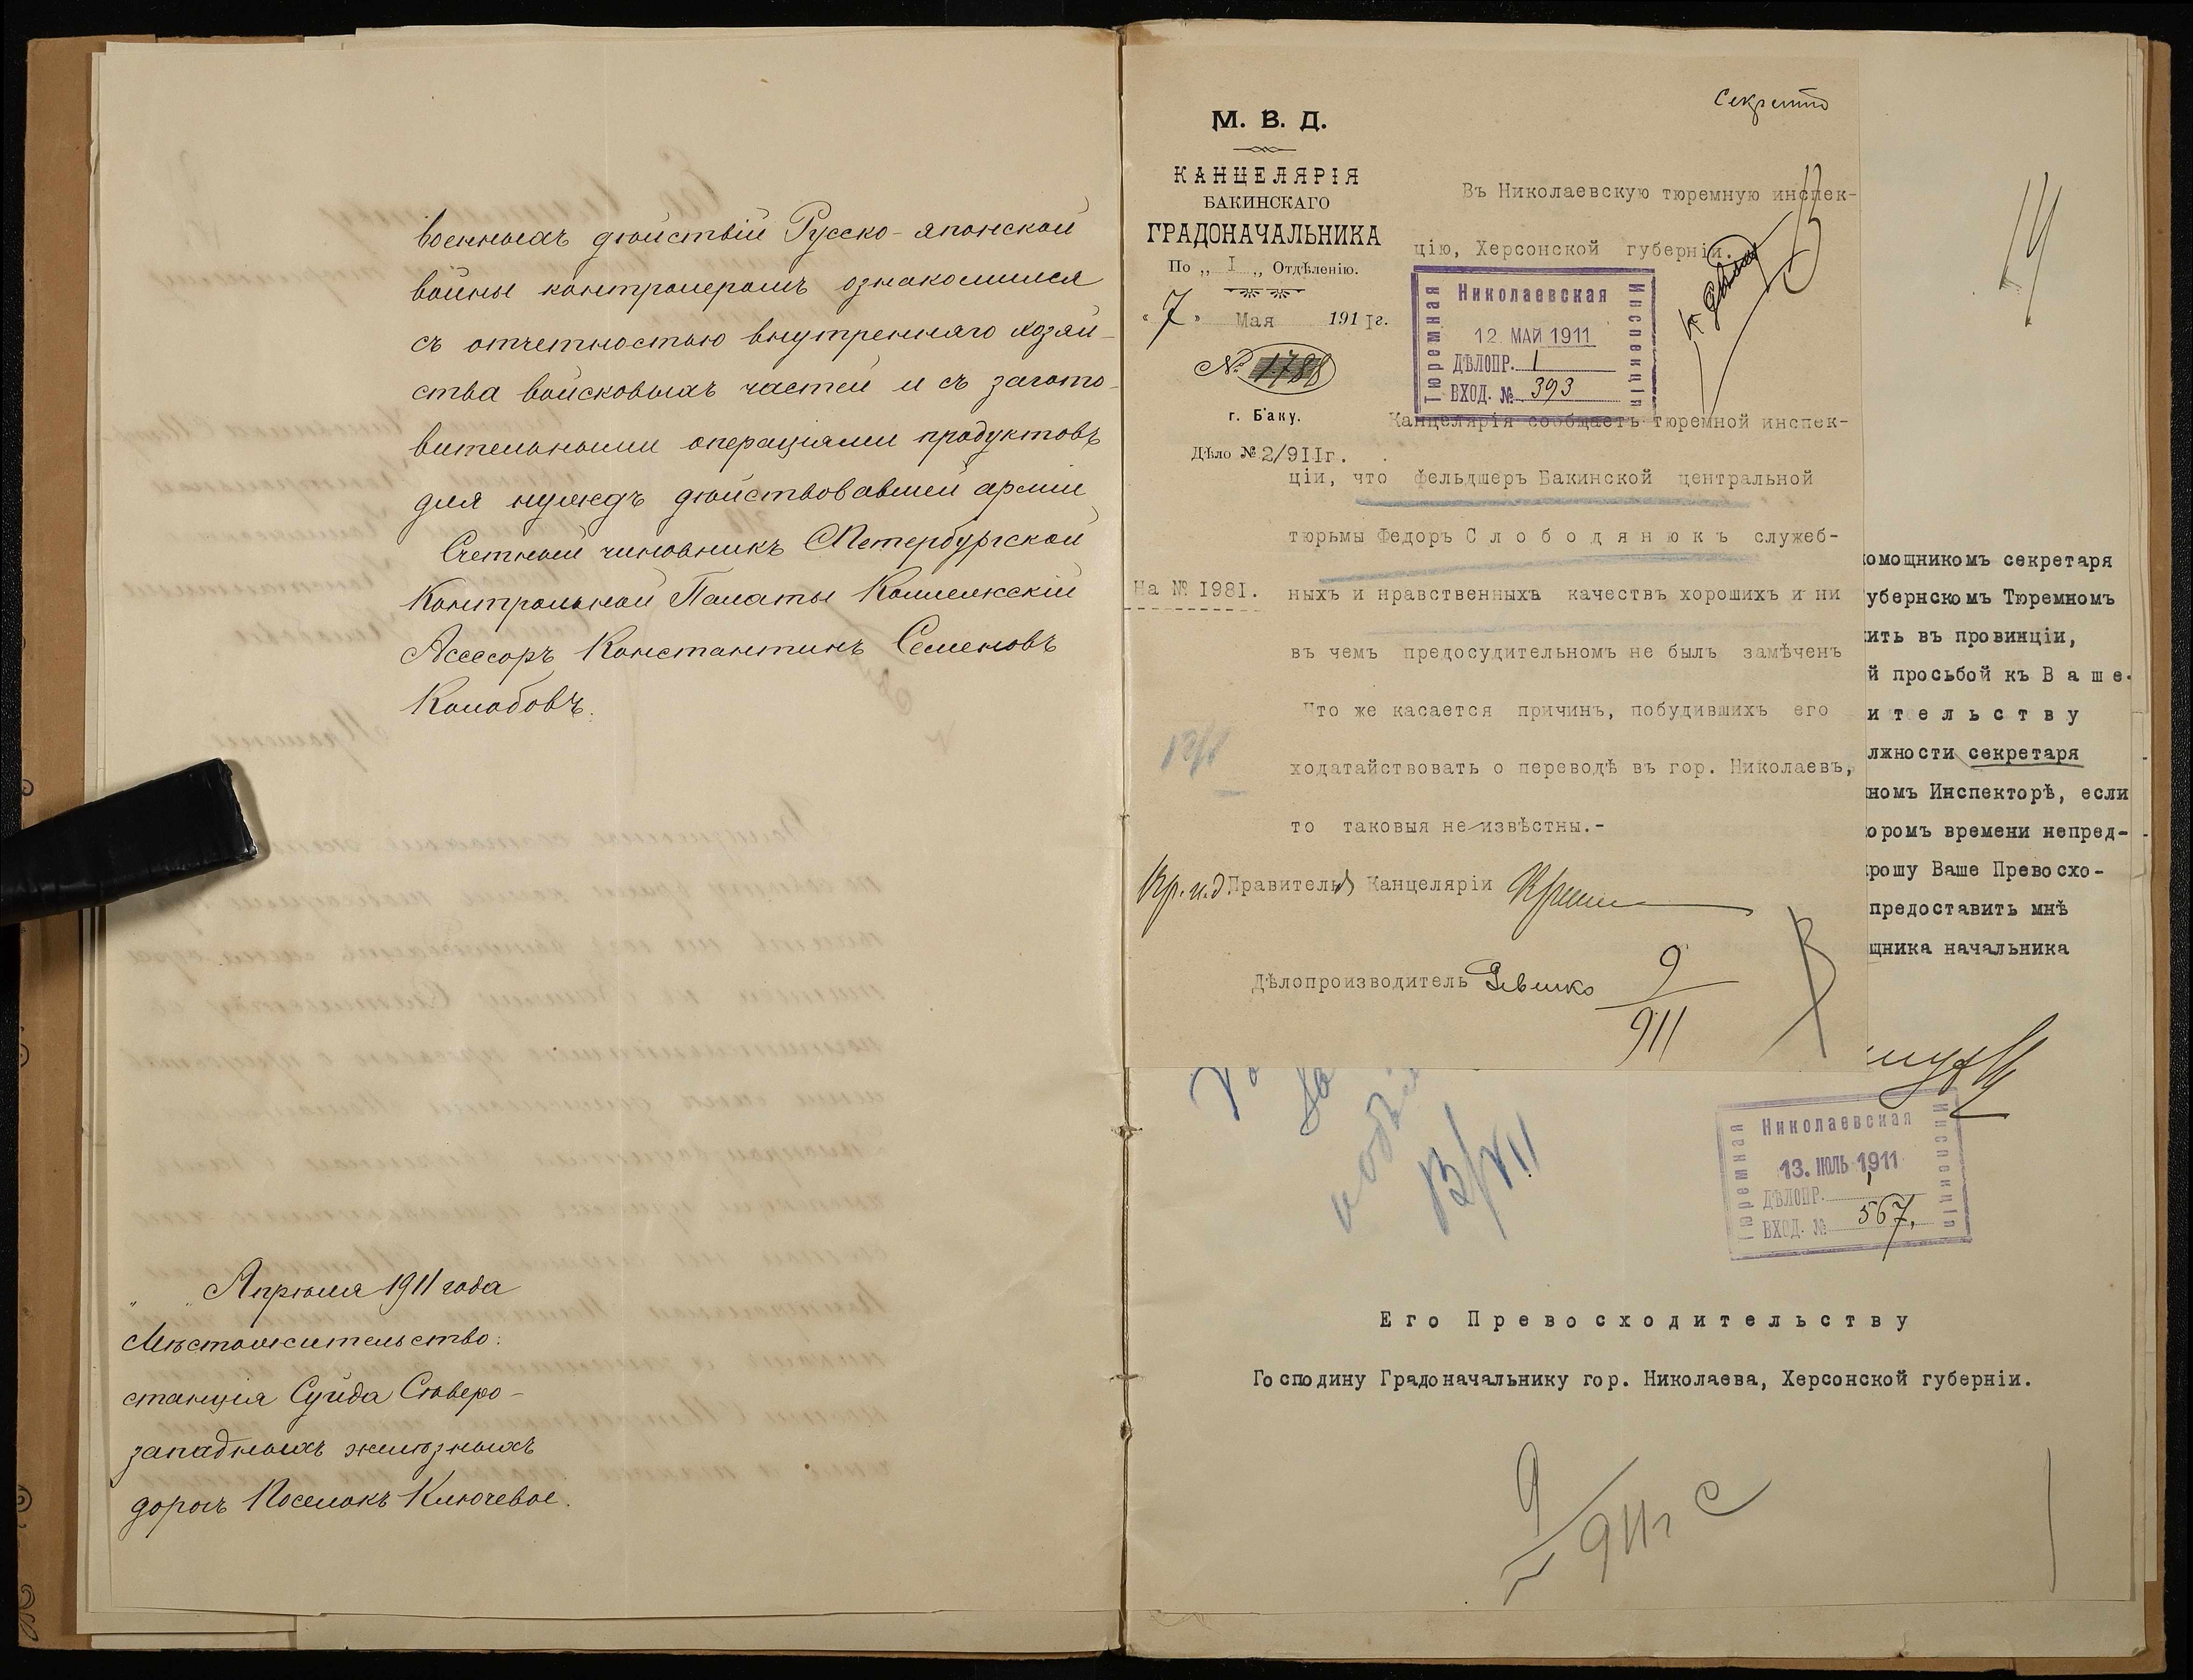 военныхъ дѣйствій Русско-японской
войны контролеромъ ознакомился
съ отчетностью внутренняго хозяй-
ства войсковыхъ частей и съ загото-
вительными операціями продуктовъ
для нуждъ дѣйствовавшей арміи
Счетный чиновникъ СПетербургской
Контрольной Палаты Коллежскій
Асесоръ Константинъ Семеновъ
Колобовъ.
" " Апрѣля 1911 года
Мѣстожительство:
станція Суйда Сѣверо-
западныхъ желѣзныхъ
дорогъ Поселокъ Ключевое.
Секретно
М. В. Д.
КАНЦЕЛЯРІЯ
БАКИНСКАГО
ГРАДОНАЧАЛЬНИКА
По „ I „ Отдѣленію.
« 7 » Мая 191I г.
№ 1788
г. Баку.
Дѣло № 2/9IIг.
На № I981.
Въ Николаевскую тюремную инспек-
цію, Херсонской губерніи.
Тюремная Николаевская Инспекція
12. МАЙ 1911
ДѢЛОПР. 1
ВХОД. № 393
Канцелярія сообщаетъ тюремной инспек-
ціи, что фельдшеръ Бакинской центральной
тюрьмы Федоръ С л о б о д я н ю к ъ служеб-
ныхъ и нравственныхъ качествъ хорошихъ и ни
въ чемъ предосудительномъ не былъ замѣченъ
Что же касается причинъ, побудившихъ его
ходатайствовать о переводѣ въ гор. Николаевъ,
то таковыя не извѣстны.-
Вр. и.д Правителя Канцеляріи
Дѣлопроизводитель
9
911
омощникомъ секретаря
убернскомъ Тюремномъ
ить въ провинціи,
й просьбой къ В а ш е-
и т е л ь с т в у
лжности секретаря
номъ Инспекторѣ, если
оромъ времени непред-
рошу Ваше Превосхо-
предоставить мнѣ
щника начальника
13/VII
Тюремная Николаевская Инспекція
13. ІЮЛЬ 1911
ДѢЛОПР. 1
ВХОД. № 567.
Е г о П р е в о с х о д и т е л ь с т в у
Господину Градоначальнику гор. Николаева, Херсонской губерніи.
9
911г